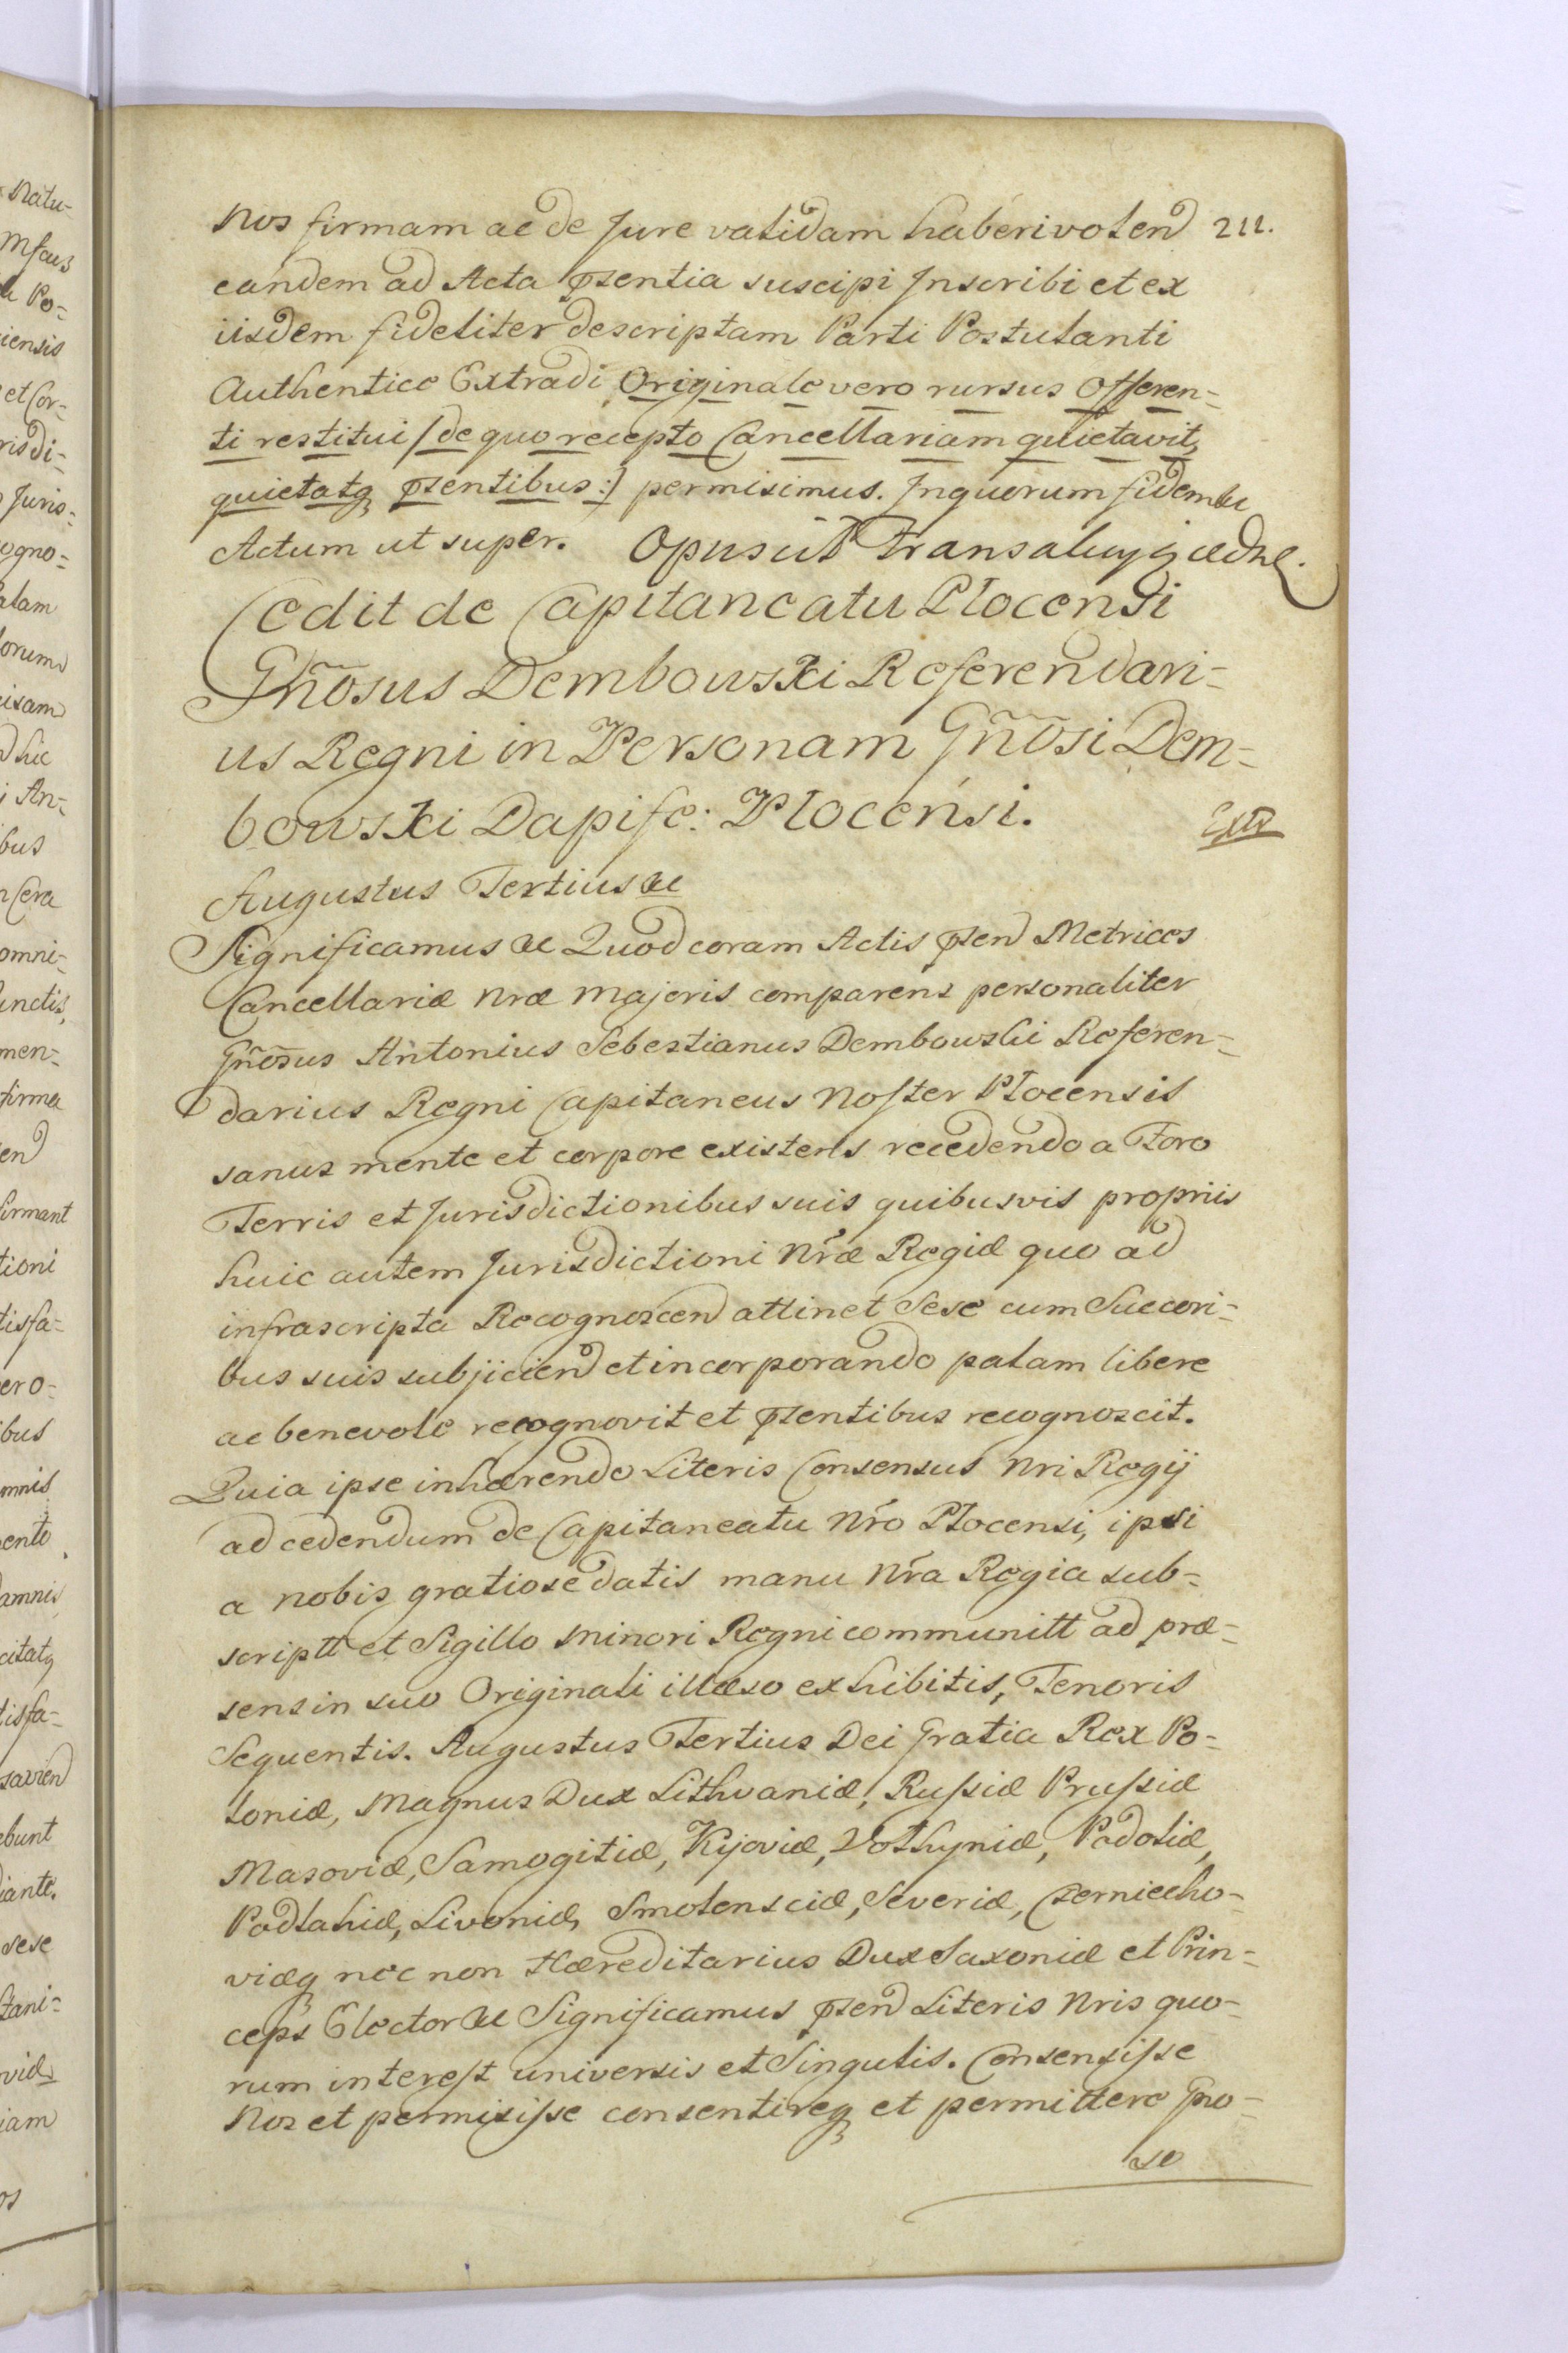 Nos firmam ac de Jure validam haberi volend 211.
eandem ad Acta pñsentia suscipi Inscribi et ex
iisdem fideliter descriptam Parti Postulanti
Authentice Extradi Originale vero rursus Offeren-
ti restitui /: de quo recepto Cancellariam quietavit,
quietatq pñsentibus :/ permisimus. In quorum fidem &c
Actum ut super.
Cedit de Capitaneatu Plocensi
Gñosus Dembowski Referendari-
us Regni in Personam Gñosi Dem-
bowski Dapife: Plocensi.
Extr
Augustus Tertius &c
Significamus &c Quod coram Actis pñsend Metrices
Cancellariæ nræ Majoris comparens personaliter
Gñosus Antonius Sebestianus Dembowski Referen-
darius Regni Capitaneus Noster Plocensis
sanus mente et corpore existens recedendo a Foro
Terris et Jurisdictionibus suis quibusvis propriis
huic autem Jurisdictioni Nræ Regiæ quo ad
infrascripta Recognoscend attinet Sese cum Succori-
bus suis subjiciend et incorporando palam libere
ac benevole recognovit et pñsentibus recognoscit.
Quia ipse inhærendo Literis Consensus Nri Regij
ad cedendum de Capitaneatu Nro Plocensi, ipsi
a nobis gratiose datis manu Nra Regia sub-
scriptt et Sigillo Minori Regni communitt ad præ-
sens in suo Originali illæso exhibitis, Tenoris
Sequentis. Augustus Tertius Dei Gratia Rex Po-
loniæ, Magnus Dux Lithvaniæ, Russiæ Prussiæ
Masoviæ, Samogitiæ, Kijoviæ, Volhyniæ, Podoliæ,
Podlahiæ, Livoniæ, Smolensciæ, Severiæ, Czerniecho-
viæq nec non Hæreditarius Dux Saxoniæ et Prin-
ceps Elector &c Significamus pñsend Literis Nris quo-
rum interest universis et Singulis. Consensisse
Nos et permisisse consentireq et permittere Gño-
so